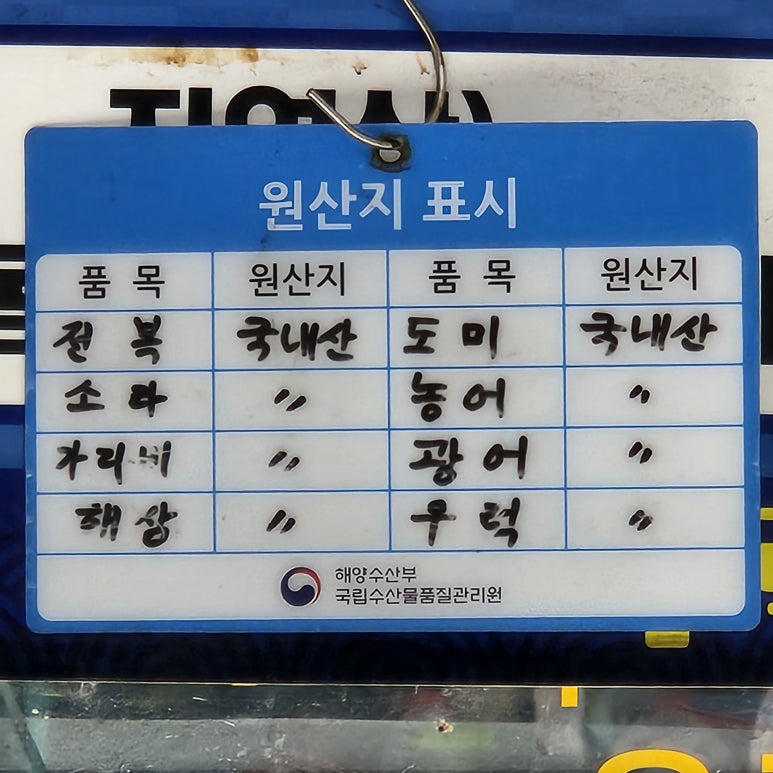 원산지 표시
품 목 원산지 품 목 원산지
전 복 국내산 도 미 국내산
소 라 〃 농 어 〃
가리비 〃 광 어 〃
해 삼 〃 우 럭 〃
해양수산부
국립수산물품질관리원